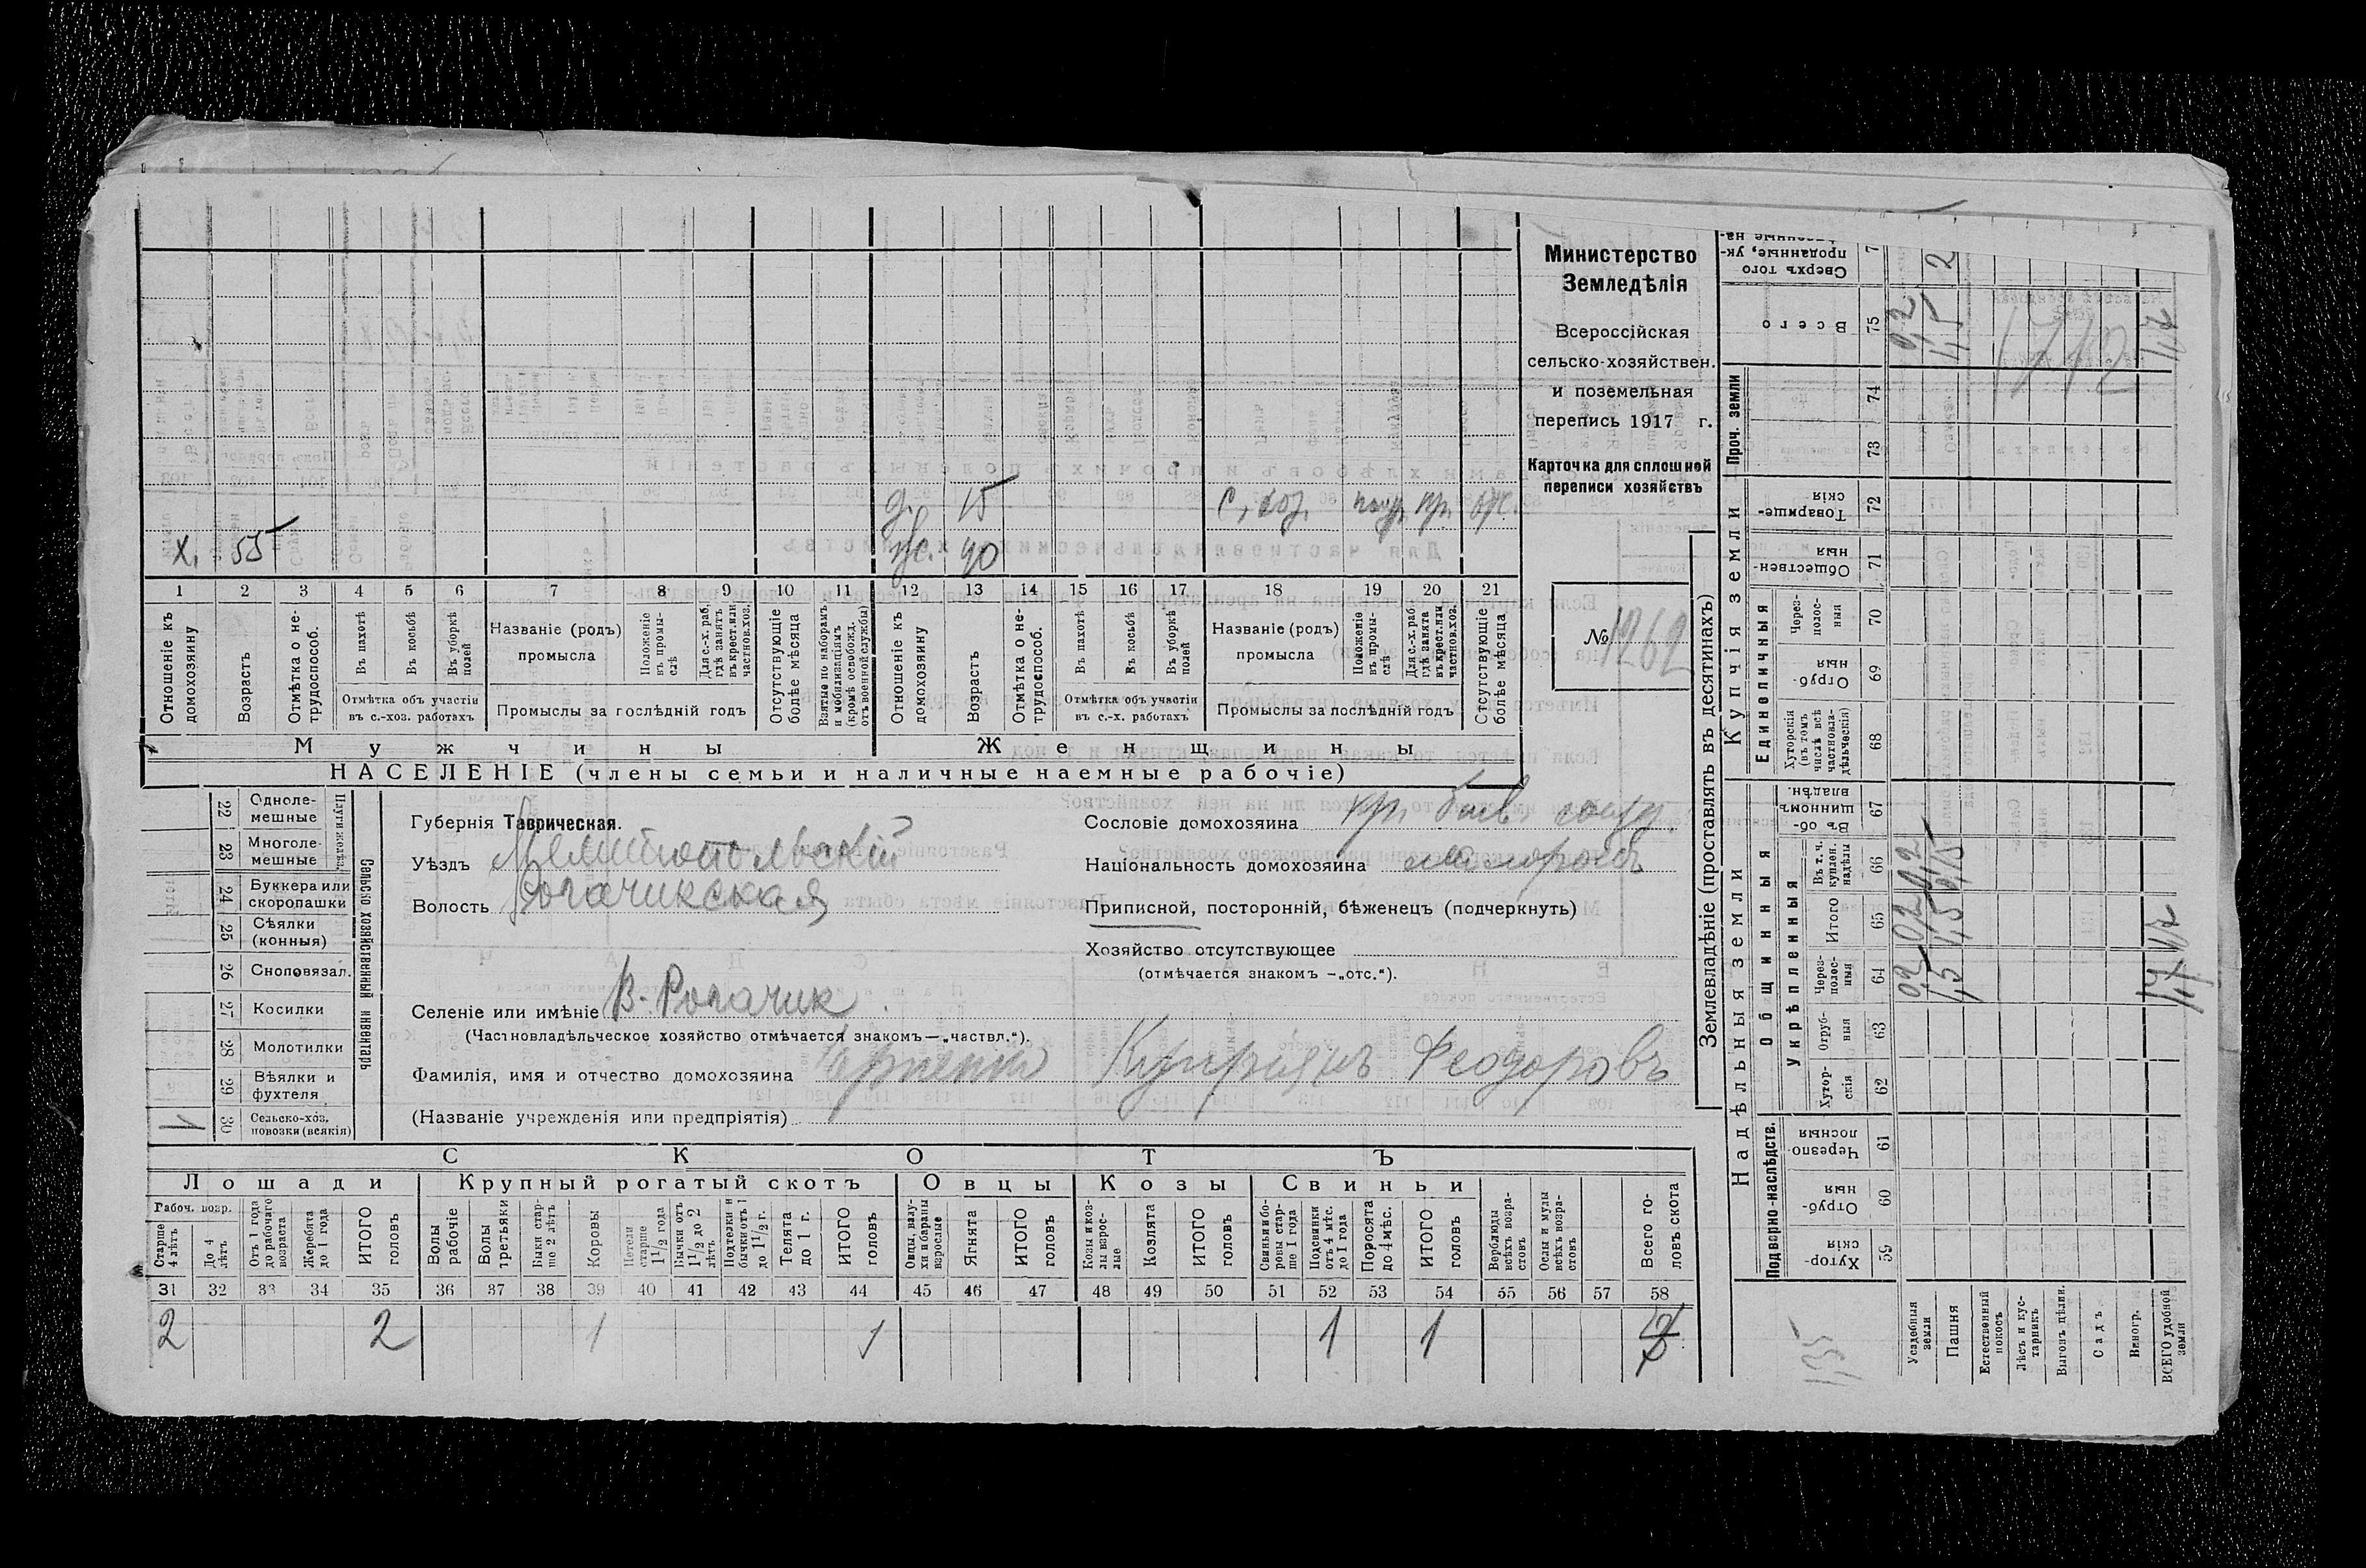 Министерство
Земледѣлія
Всероссійская
сельско-хозяйствен.
и поземельная
перепись 1917 г.
Карточка для сплошной
переписи хозяйствъ
№ 1262
д. 15 с. хоз. пр.
х. 55 ж. 40
1 2 3 4 5 6 7 8 9 10 11 12 13 14 15 16 17 18 19 20 21
Отношеніе къ домохозяину
Возрастъ
Отмѣтка о не-трудоспособ.
Въ пахотѣ
Въ косьбѣ
Въ уборкѣ полей
Отмѣтка объ участіи въ с.-хоз. работахъ
Названіе (родъ) промысла
Положеніе въ промы-слѣ
Для с.-х. раб. гдѣ занятъ въ крест. или частнов. хоз.
Промыслы за послѣдній годъ
Отсутствующіе болѣе мѣсяца
Взятые по наборамъ и мобилизаціямъ (кромѣ освобожд. отъ военной службы)
Отношеніе къ домохозяину
Возрастъ
Отмѣтка о не-трудоспособ.
Въ пахотѣ
Въ косьбѣ
Въ уборкѣ полей
Отмѣтка объ участіи въ с.-х. работахъ
Названіе (родъ) промысла
Положеніе въ промы-слѣ
Для с.-х. раб. гдѣ занята въ крест. или частнов. хоз.
Промыслы за послѣдній годъ
Отсутствующіе болѣе мѣсяца
Мужчины Женщины
НАСЕЛЕНІЕ (члены семьи и наличные наемные рабочіе)
Сельско хозяйственный инвентарь
22 Одноле-мешные
23 Многоле-мешные
24 Буккера или скоропашки
25 Сѣялки (конныя)
26 Сноповязал.
27 Косилки
28 Молотилки
29 Вѣялки и фухтеля
30 Сельско-хоз. повозки (всякія) 1
Губернія Таврическая.
Уѣздъ Мелитопольскій
Волость Рогачикская
Селеніе или имѣніе В. Рогачик
(Частновладѣльческое хозяйство отмѣчается знакомъ—„частвл.“).
Фамилія, имя и отчество домохозяина Купріянъ Феодоровъ
(Названіе учрежденія или предпріятія)
Сословіе домохозяина кр. быв.
Національность домохозяина малороссъ
Приписной, посторонній, бѣженецъ (подчеркнуть)
Хозяйство отсутствующее
(отмѣчается знакомъ —„отс.“).
СКОТЪ
Лошади Крупный рогатый скотъ Овцы Козы Свиньи
Рабоч. возр.
Старше 4 лѣтъ
До 4 лѣтъ
Отъ 1 года до рабочаго возраста
Жеребята до 1 года
ИТОГО головъ
Волы рабочіе
Волы третьяки
Быки стар-ше 2 лѣтъ
Коровы
Нетели старше 1 1/2 года
Бычки отъ 1 1/2 до 2 лѣтъ
Подтелки и бычки отъ 1 до 1 1/2 г.
Телята до 1 г.
ИТОГО головъ
Овцы, валу-хи и бараны взрослые
Ягнята
ИТОГО головъ
Козы и коз-лы взрос-лые
Козлята
ИТОГО головъ
Свиньи и бо-ровы стар-ше 1 года
Подсвинки отъ 4 мѣс. до 1 года
Поросята до 4 мѣс.
ИТОГО головъ
Верблюды всѣхъ возра-стовъ
Ослы и мулы всѣхъ возра-стовъ
Всего го-ловъ скота
31 32 33 34 35 36 37 38 39 40 41 42 43 44 45 46 47 48 49 50 51 52 53 54 55 56 57 58
2 2 1 1 1 1
Землевладѣніе (проставлять въ десятинахъ)
Надѣльныя земли Купчія земли Проч. земли
Подворно-наслѣдств.
Общинныя
Укрѣпленныя
Единоличныя
Хутор-скія 59
Отруб-ныя 60
Черезпо-лосныя 61
Хутор-скія 62
Отруб-ныя 63
Через-полос-ныя 64
Итого 65
Въ т. ч. куплен. надѣлы 66
Въ об-щинномъ владѣн. 67
Хуторскія (въ томъ числѣ всѣ частновла-дѣльческія) 68
Отруб-ныя 69
Через-полос-ныя 70
Обществен-ныя 71
Товарище-скія 72
73
74
Всего 75
Сверхъ того проданные, ук-
Усадебныя земли 0,2 0,2 0,2 0,2
Пашня 1,5 1,5 1,5 1,5 2
Естественный покосъ
Лѣсъ и кус-тарникъ
Выгонъ цѣлин.
Садъ
Виногр.
ВСЕГО удобной земли 1,7 1,7 1,7
1712
135